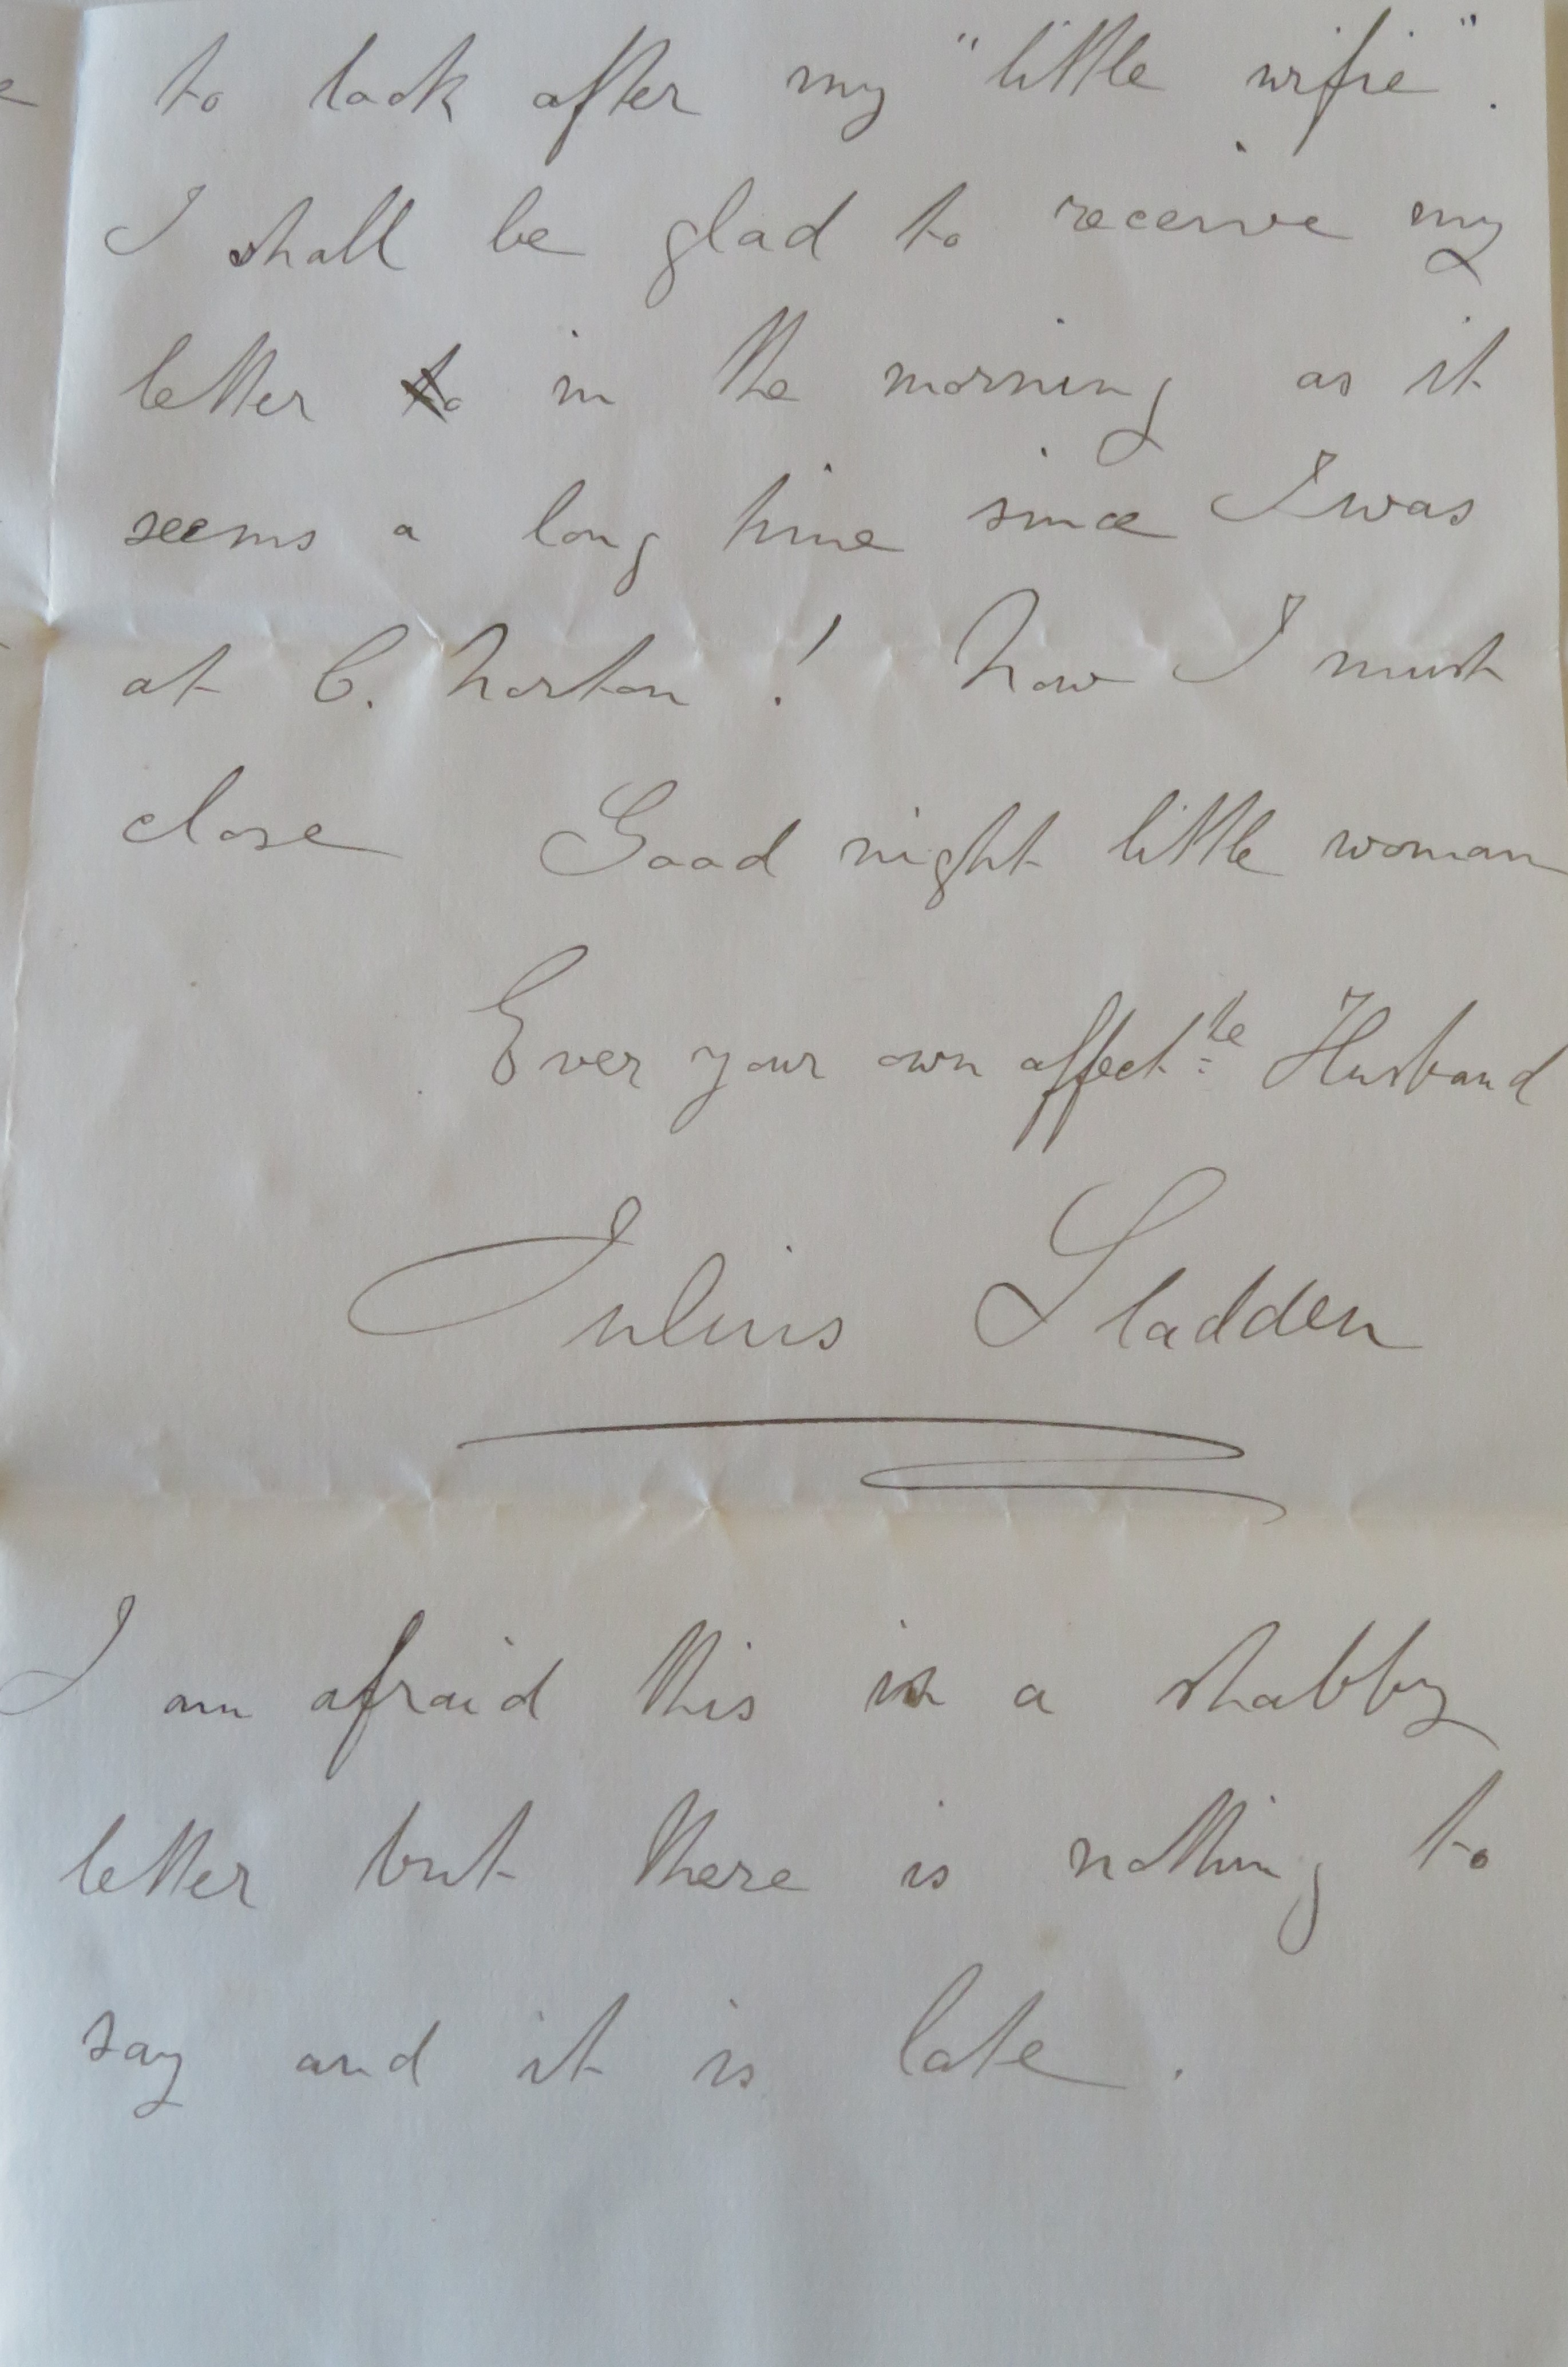 to look after my "little wifie".
I shall be glad to receive my
letter to in the morning as it
seems a long time since I was
at C. Norton! Now I must
close Good night little woman
Ever your own affectte Husband
Julius Sladden
I am afraid this is a shabby
letter but there is nothing to
say and it is late.